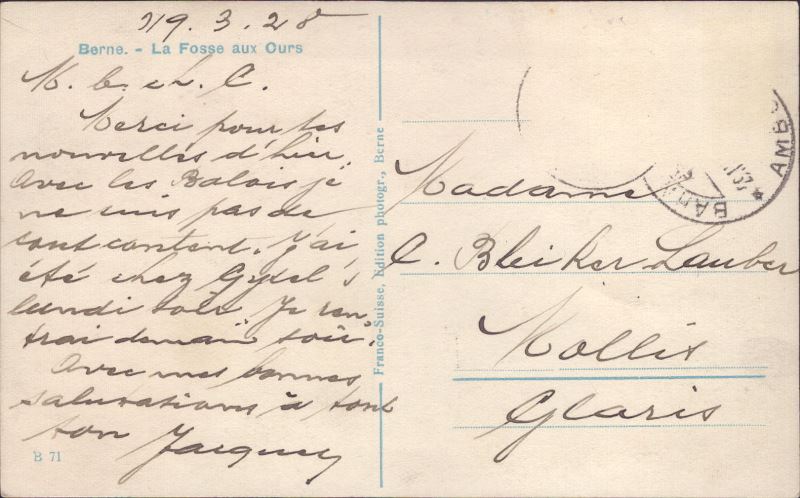 19.3.28
Berne. - La Fosse aux Ours
M. b. ch. C.
Merci pour tes
nouvelles d'hier.
Avec les Balois je
ne suis pas de
tout content. J'ai
été chez Gysel's
lundi soir. Je ren
trai demain soir.
Avec mes bonnes
salutations à tout
ton Jacques
B 71
Franco-Suisse, Edition photogr., Berne
Madame
C. Bleiker Lauber
Mollis
Glaris
AMB
BAN